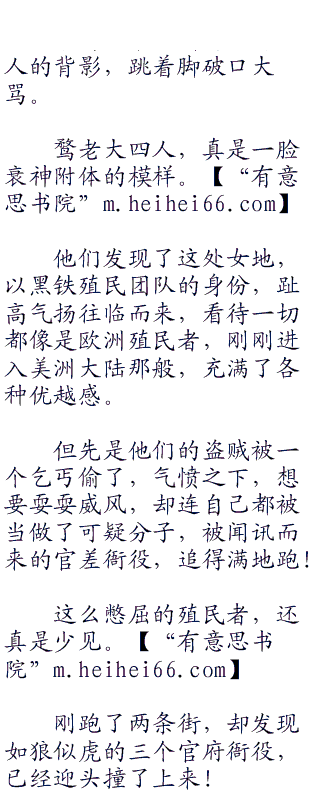 人的背影，跳着脚破口大
骂。
鹜老大四人，真是一脸
衰神附体的模样。【“有意
思书院”m.heihei66.com】
他们发现了这处女地，
以黑铁殖民团队的身份，趾
高气扬往临而来，看待一切
都像是欧洲殖民者，刚刚进
入美洲大陆那般，充满了各
种优越感。
但先是他们的盗贼被一
个乞丐偷了，气愤之下，想
要耍耍威风，却连自己都被
当做了可疑分子，被闻讯而
来的官差衙役，追得满地跑！
这么憋屈的殖民者，还
真是少见。【“有意思书
院”m.heihei66.com】
刚跑了两条街，却发现
如狼似虎的三个官府衙役，
已经迎头撞了上来！